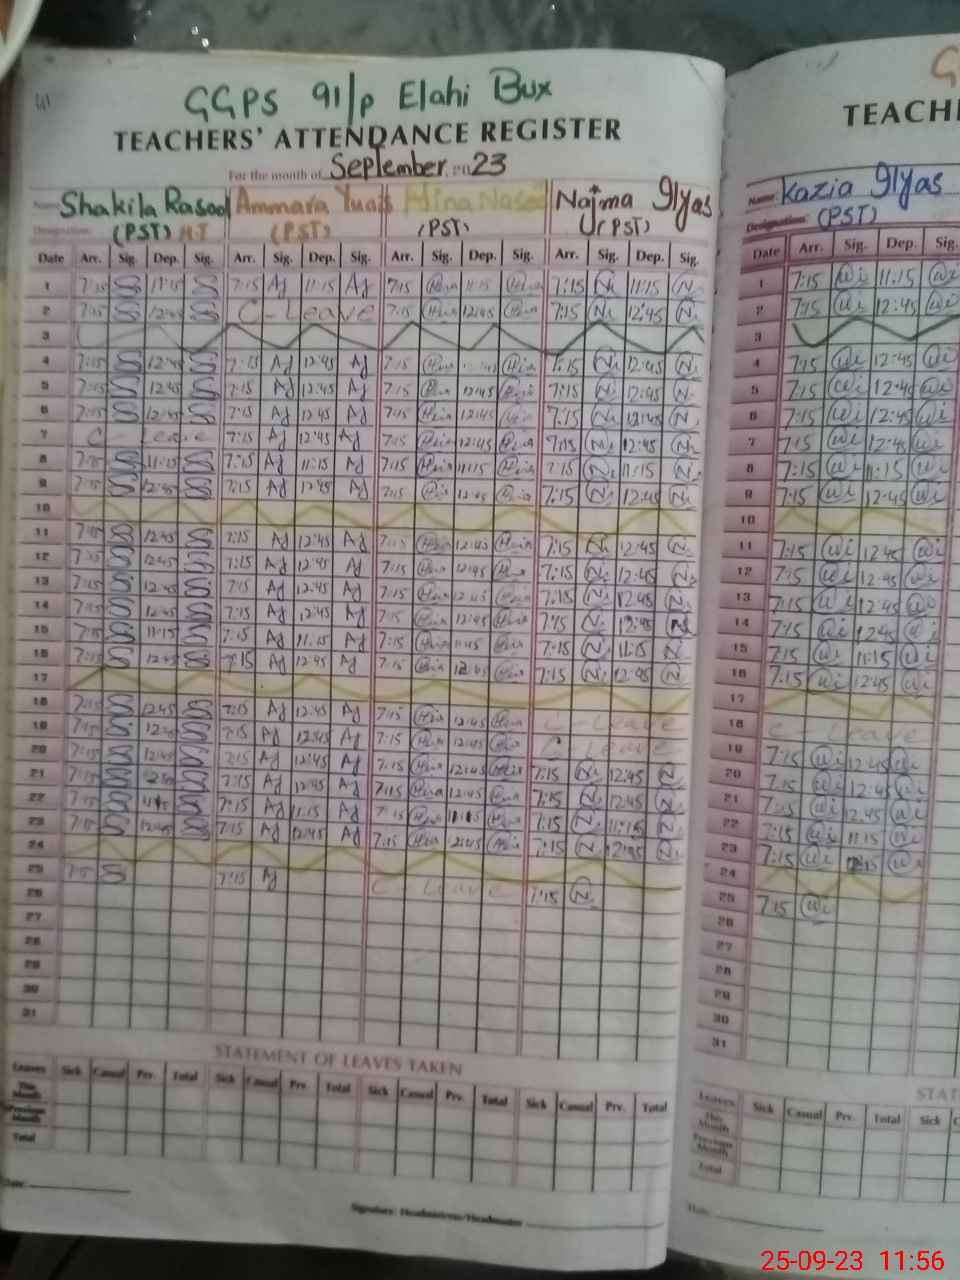 GGPS 91/p Elahi Bux
TEACHERS' ATTENDANCE REGISTER
For the month of September 23
Shakila Rasool Ammara Hina Najma Ilyas
(PST) H.T (PST) (PST) (PST)
Date Arr. Sig. Dep. Sig. Arr. Sig. Dep. Sig. Arr. Sig. Dep. Sig. Arr. Sig. Dep. Sig.
1 7:15 11:15 7:15 AJ 11:15 AJ 7:15 Hina 11:15 Hina 7:15 N 11:15 N
2 7:15 12:45 C-Leave 7:15 Hina 12:45 Hina 7:15 N 12:45 N
3
4 7:15 12:45 7:15 AJ 12:45 AJ 7:15 Hina Hina 7:15 N 12:45 N
5 7:15 12:45 7:15 AJ 12:45 AJ 7:15 Hina 12:45 Hina 7:15 N 12:45 N
6 7:15 12:45 7:15 AJ 12:45 AJ 7:15 Hina 12:45 Hina 7:15 N 12:45 N
7 C-Leave 7:15 AJ 12:45 AJ 7:15 Hina 12:45 Hina 7:15 N 12:45 N
8 7:15 11:15 7:15 AJ 11:15 AJ 7:15 Hina 11:15 Hina 7:15 N 11:15 N
9 7:15 12:45 7:15 AJ 12:45 AJ 7:15 Hina 12:45 Hina 7:15 N 12:45 N
10
11 7:15 12:45 7:15 AJ 12:45 AJ 7:15 Hina 12:45 Hina 7:15 N 12:45 N
12 7:15 12:45 7:15 AJ 12:45 AJ 7:15 Hina 12:45 Hina 7:15 N 12:45 N
13 7:15 12:45 7:15 AJ 12:45 AJ 7:15 Hina 12:45 Hina 7:15 N 12:45 N
14 7:15 12:45 7:15 AJ 12:45 AJ 7:15 Hina 12:45 Hina 7:15 N 12:45 N
15 7:15 11:15 7:15 AJ 11:15 AJ 7:15 Hina 11:15 Hina 7:15 N 11:15 N
16 7:15 12:45 7:15 AJ 12:45 AJ 7:15 Hina 12:45 Hina 7:15 N 12:45 N
17
18 7:15 12:45 7:15 AJ 12:45 AJ 7:15 Hina 12:45 Hina C-Leave
19 7:15 12:45 7:15 AJ 12:45 AJ 7:15 Hina 12:45 Hina C-Leave
20 7:15 12:45 7:15 AJ 12:45 AJ 7:15 Hina 12:45 Hina 7:15 N 12:45 N
21 7:15 12:45 7:15 AJ 12:45 AJ 7:15 Hina 12:45 Hina 7:15 N 12:45 N
22 7:15 7:15 AJ 11:15 AJ 7:15 Hina 11:15 Hina 7:15 N 11:15 N
23 7:15 12:45 7:15 AJ 12:45 AJ 7:15 Hina 12:45 Hina 7:15 N 12:45 N
24
25 7:15 7:15 AJ C-Leave 7:15 N
26
27
28
29
30
31
STATEMENT OF LEAVES TAKEN
Leaves Sick Casual Prv. Total Sick Casual Prv. Total Sick Casual Prv. Total Sick Casual Prv. Total
This Month
Previous Month
Total
Date:
Signature: Headmistress/Headmaster
G
TEACH
Name: Kazia Ilyas
Designation: (PST)
Date Arr. Sig. Dep. Sig.
1 7:15 11:15
2 7:15 12:45
3
4 7:15 12:45
5 7:15 12:45
6 7:15 12:45
7 7:15 12:45
8 7:15 11:15
9 7:15 12:45
10
11 7:15 12:45
12 7:15 12:45
13 7:15 12:45
14 7:15 12:45
15 7:15 11:15
16 7:15 12:45
17
18 C-Leave
19 7:15 12:45
20 7:15 12:45
21 7:15 12:45
22 7:15 11:15
23 7:15
24
25 7:15
26
27
28
29
30
31
STAT
Leaves Sick Casual Prv. Total Sick C
This Month
Previous Month
Total
25-09-23 11:56